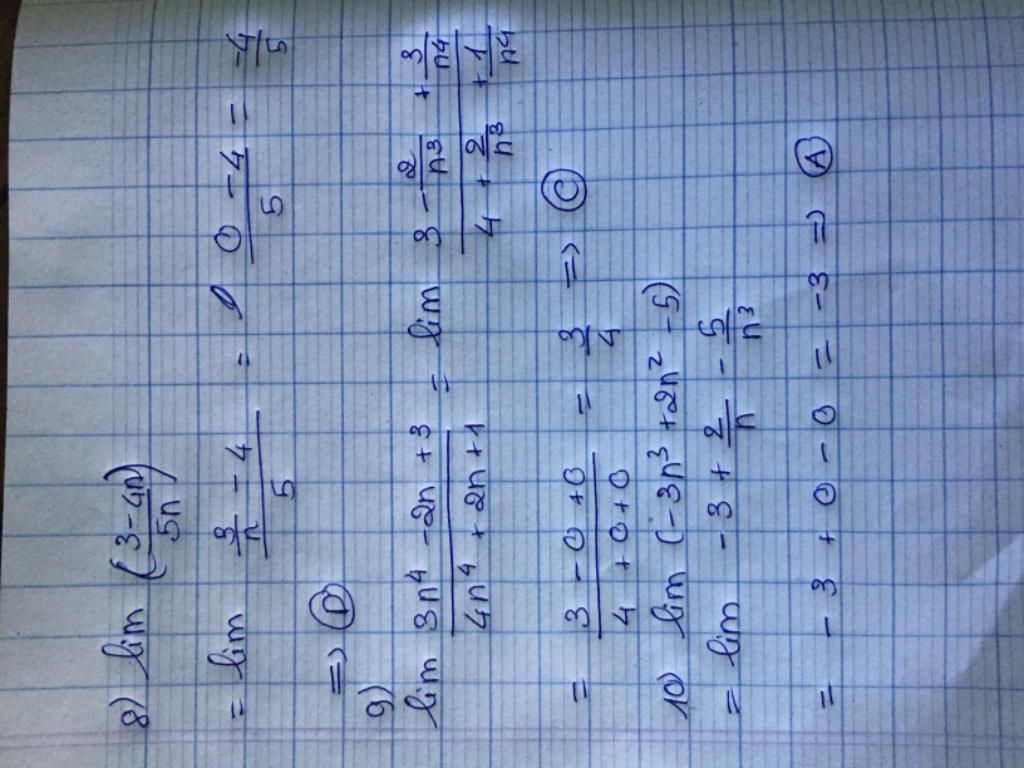 8) lim (3-4n/5n)
= lim 3/n - 4 / 5 = 0 - 4 / 5 = -4/5
=> D
9)
lim 3n⁴ - 2n + 3 / 4n⁴ + 2n + 1 = lim 3 - 2/n³ + 3/n⁴ / 4 + 2/n³ + 1/n⁴
= 3 - 0 + 0 / 4 + 0 + 0 = 3/4 => C
10) lim (-3n³ + 2n² - 5)
= lim -3 + 2/n - 5/n³
= -3 + 0 - 0 = -3 => A